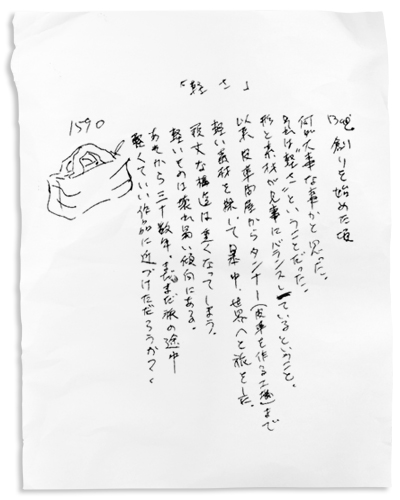 「軽さ」
Bag 創りを始めた頃
何が大事な事かと思った。
それは“軽さ”ということだった。
形と素材が見事にバランスしているということ。
以来、皮革問屋からタンナー(皮革を作る工場)まで
軽い素材を求めて日本中、世界へと旅をした。
頑丈な構造は重くなってしまう。
軽いものは壊れ易い傾向にある。
あれから二十数年。まだまだ旅の途中
軽くていい作品に近づけただろうか?
1590